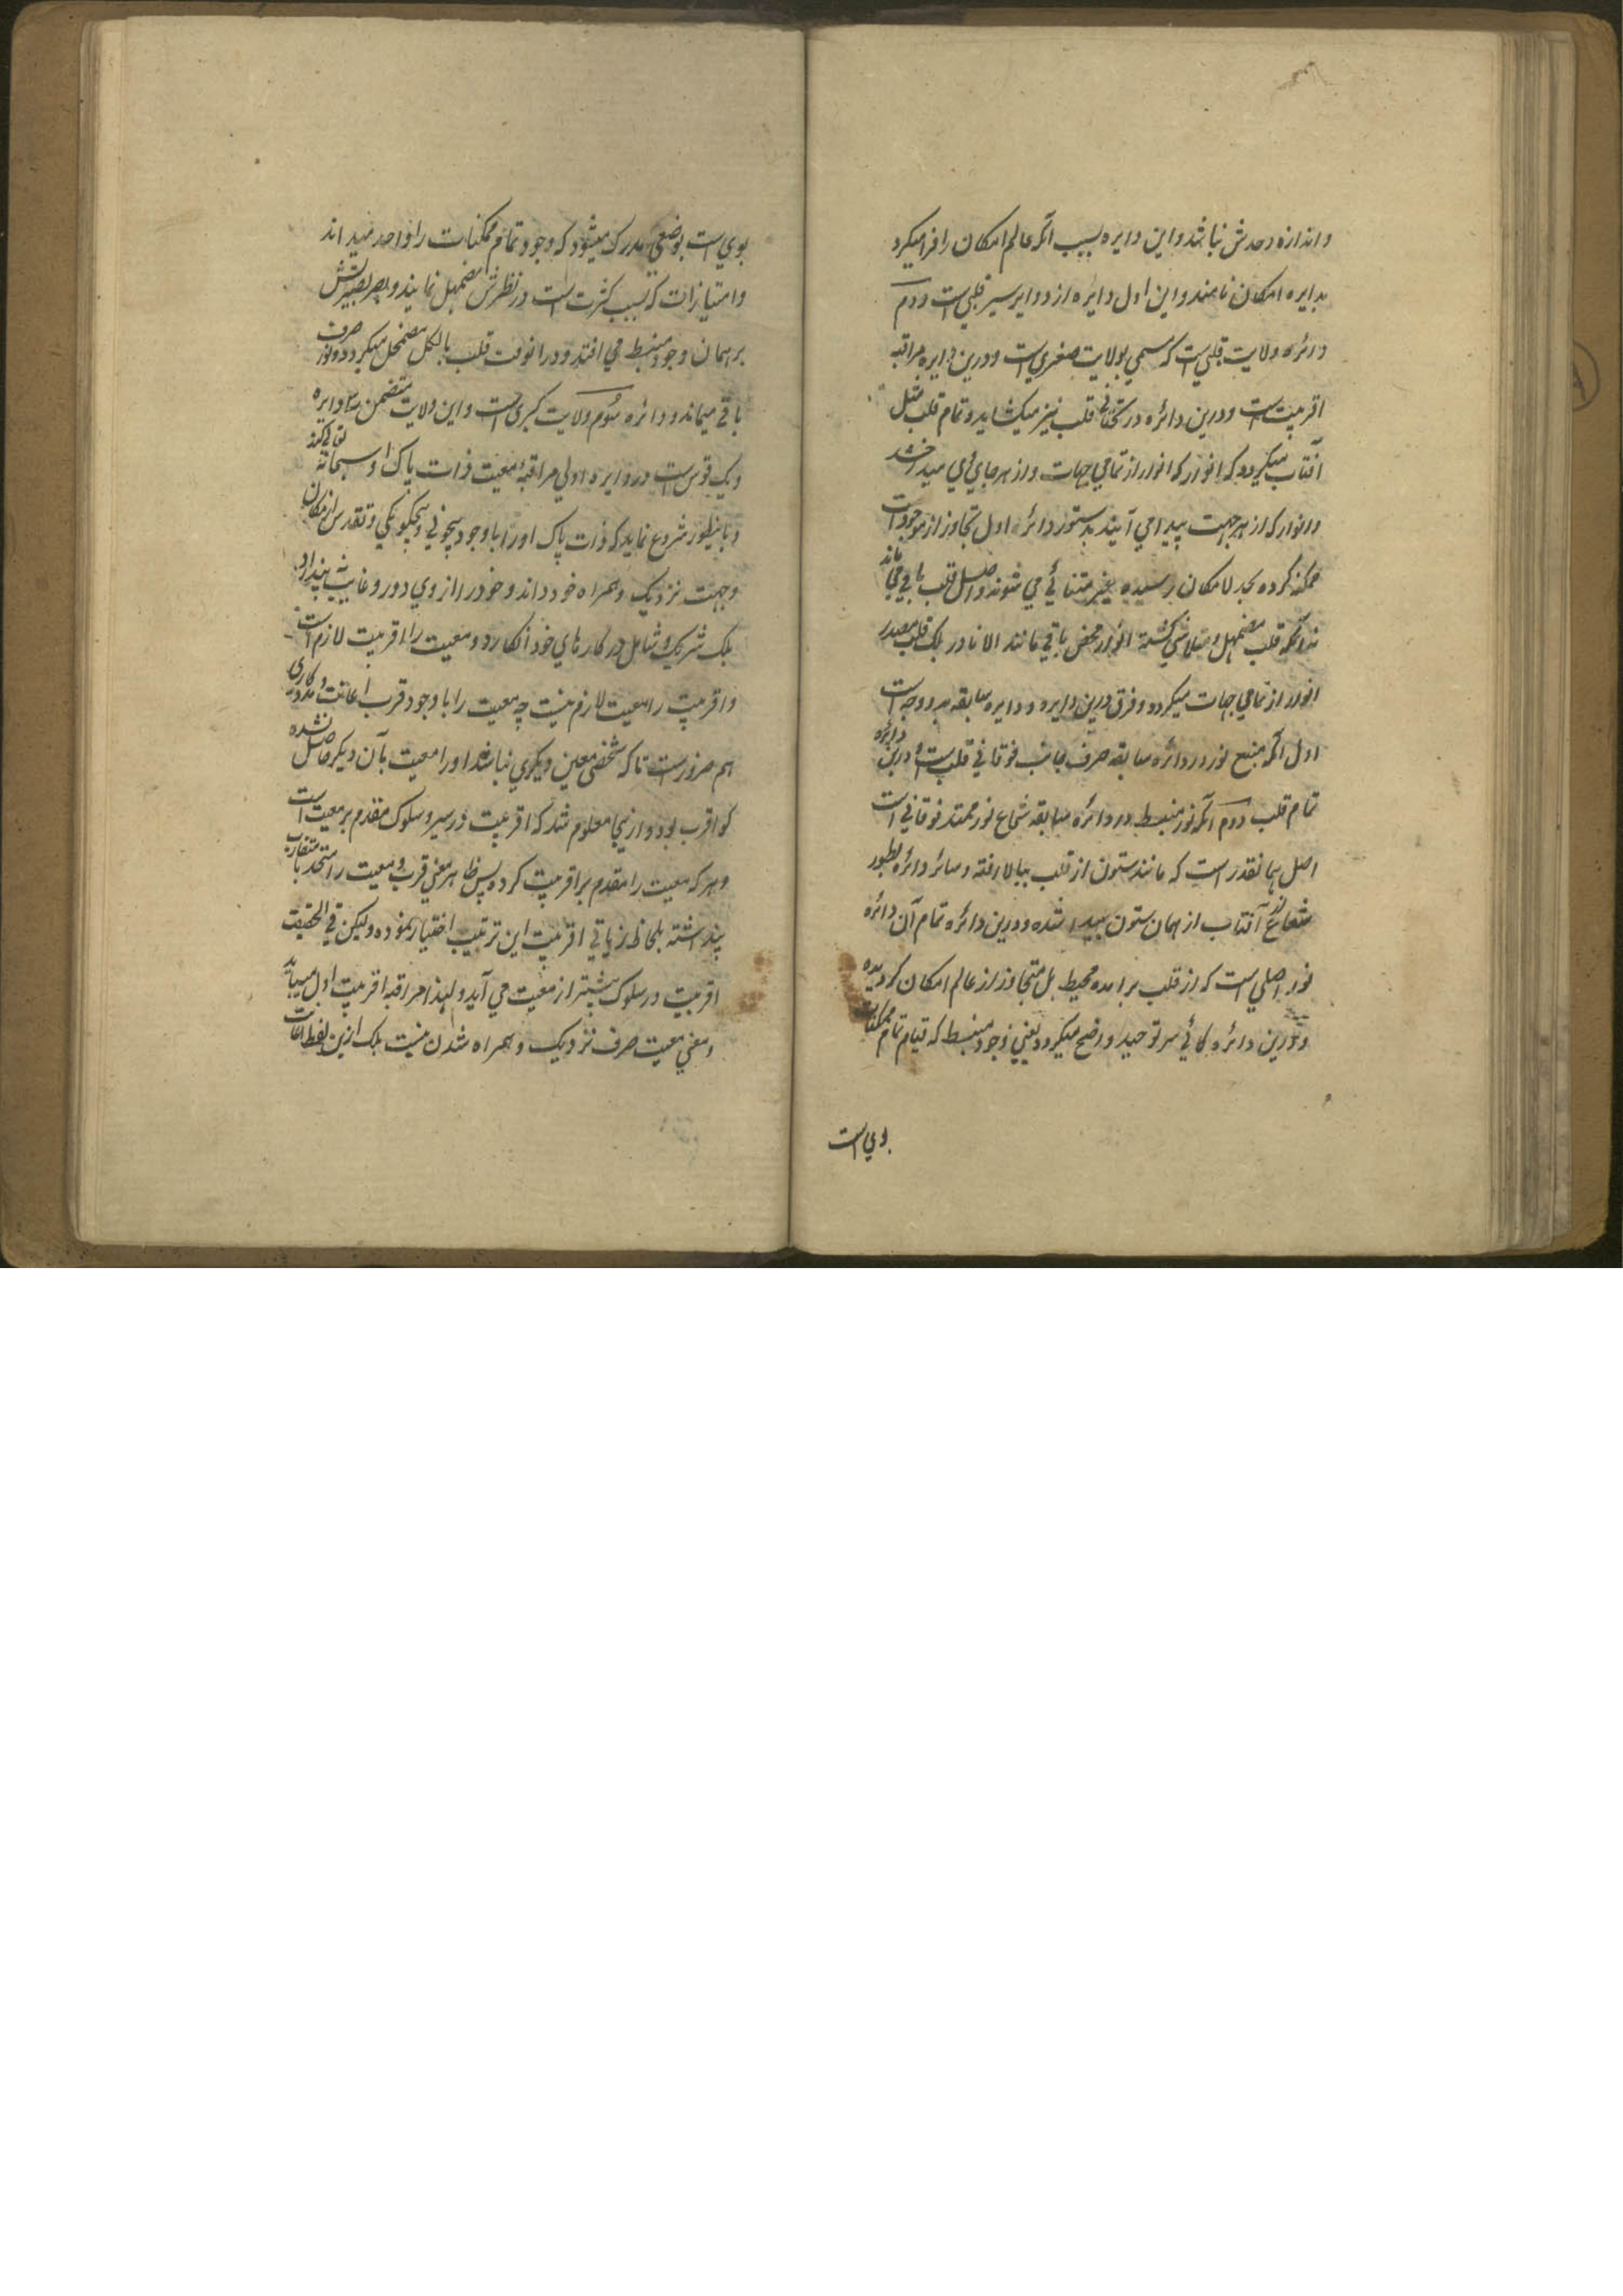 و اندازه و حدش نباشد و این دایره بسبب آنکه عالم امکان را فرا میگیرد
بدایره امکان نامند و این اول دایره از دوایر سیر قلبی است دوم
دائره ولایت قلبی است که مسمی بولایت صغری است و درین دایره مراقبه
اقربیت است و درین دائره در تحتانی قلب نیز میکشاید و تمام قلب مثل
آفتاب میگردد که انوار از تمامی جهات و از هر جای وی میدرخشد
و انوار که از هر جهت پیدا می آیند بدستور دائره اول تجاوز از موجودات
ممکنه کرده بحد لا مکان رسیده غیر متناهی می شوند و اصل قلب باقی می ماند
نه آنکه قلب مضمحل و متلاشی گشته انوار محض باقی مانند الا نادر بلکه قلب مصدر
انوار از تمامی جهات میگردد و فرق درین دایره و دایره سابقه بدو وجه است
اول آنکه منبع نور در دائره سابقه صرف جانب فوقانی قلب است و درین دائره
تمام قلب دوم آنکه نور منبسط در دائره سابقه شعاع نور ممتد فوقانی است
اصل همانقدر است که مانند ستون از قلب ببالا رفته و سائر دائره بطور
شعاع نور آفتاب از همان ستون پیدا شده و درین دائره تمام آن دائره
نور اصلی است که از قلب برامده محیط بل متجاوز از عالم امکان گردیده
و درین دائره گاهی سر توحید واضح میگردد یعنی وجود منبسط که قیام تمام ممکنات
بوی است
بوی است بوضعی مدرک میشود که وجود تمام ممکنات را واحد میداند
و امتیازات که سبب کثرت است در نظرش مضمحل نمایند و بصر بصیرتش
بر همان وجود منبسط می افتد و درانوقت قلب بالکل مضمحل میگردد و نور صرف
باقی میماند و دائره سوم ولایت کبری است و این ولایت متضمن سه دایره
و یک قوس است در دایره اولی مراقبه معیت ذات پاک او سبحانه تعالی کند
و باینطور شروع نماید که ذات پاک او را با وجود بیچونی و بیچگونگی و تقدس از مکان
و جهت نزدیک و همراه خود داند و خود را از وی دور و غایب نه پندارد
بلکه شریک و شامل در کارهای خود انگارد و معیت را اقربیت لازم است
و اقربیت را معیت لازم نیست چه معیت را با وجود قرب اعانت و مددگاری
هم ضرور است تا که شخصی معین دیگری نباشد او را معیت بآن دیگر حاصل نشده
گو اقرب بود و ازینجا معلوم شد که اقربیت در سیر و سلوک مقدم بر معیت است
و هر که معیت را مقدم بر اقربیت کرده پس ظاهر معنی قرب و معیت را متحد یا متقارب
پنداشته بلحاظ زیادتی اقربیت این ترتیب اختیار نموده ولیکن فی الحقیقت
اقربیت در سلوک پیشتر از معیت می آید و لهذا مراقبه اقربیت اول میباید
و معنی معیت صرف نزدیک و همراه شدن نیست بلکه ازین لفظ اعانت